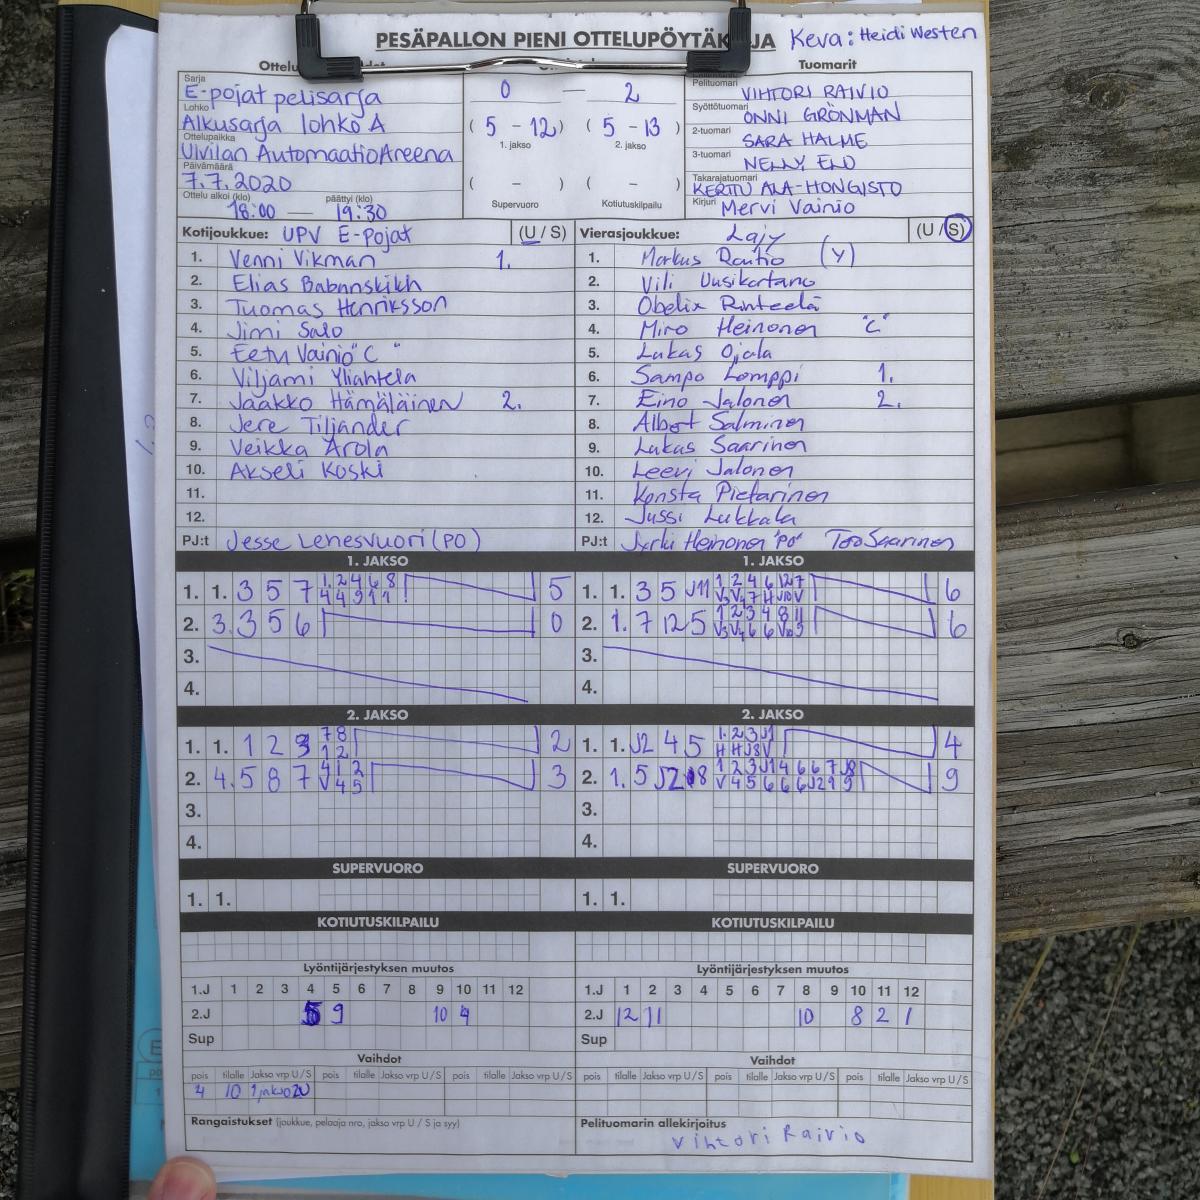 PESÄPALLON PIENI OTTELUPÖYTÄK JA Keva: Heidi Westen
Ottelu
Tuomarit
Sarja
E-pojat pelisarja
Lohko
Alkusarja lohko A
Ottelupaikka
Ulvilan AutomaatioAreena
Päivämäärä
7.7.2020
Ottelu alkoi (klo) päättyi (klo)
18:00 — 19:30
0 — 2
( 5 - 12 ) ( 5 - 13 )
1. jakso 2. jakso
( - ) ( - )
Supervuoro Kotiutuskilpailu
Pelituomari VIHTORI RAIVIO
Syöttötuomari ONNI GRÖNMAN
2-tuomari SARA HALME
3-tuomari NELLY ELO
Takarajatuomari
KERTTU ALA-HONGISTO
Kirjuri Mervi Vainio
Kotijoukkue: UPV E-Pojat (U / S)
1. Venni Vikman 1.
2. Elias Babanskikh
3. Tuomas Henriksson
4. Jimi Salo
5. Eetu Vainio "C"
6. Viljami Yliahtela
7. Jaakko Hämäläinen 2.
8. Jere Tiljander
9. Veikka Arola
10. Akseli Koski
11.
12.
PJ:t Jesse Lehesvuori (PO)
Vierasjoukkue: Lajy (U / S)
1. Markus Rautio (Y)
2. Vili Uusikartano
3. Obelix Rinteelä
4. Miro Heinonen "C"
5. Lukas Ojala
6. Sampo Lomppi 1.
7. Eino Jalonen 2.
8. Albert Salminen
9. Lukas Saarinen
10. Leevi Jalonen
11. Konsta Pietarinen
12. Jussi Lukkala
PJ:t Jyrki Heinonen "PO" Saarinen
1. JAKSO
1. 1. 3 5 7 1 2 4 6 8 5
2. 3. 3 5 6 0
3.
4.
1. JAKSO
1. 1. 3 5 J11 1 2 4 6 12 7 6
2. 1. 7 12 5 1 2 3 4 8 11 6
3.
4.
2. JAKSO
1. 1. 1 2 3 7 8 2
1 2
2. 4. 5 8 7 4 1 2 3
V 4 5
3.
4.
2. JAKSO
1. 1. J2 4 5 1 2 3 J1 4
H H J8 V
2. 1. 5 J2 8 1 2 3 J1 4 6 6 7 J8 9
V 4 5 6 6 6 J2 9 9
3.
4.
SUPERVUORO
1. 1.
SUPERVUORO
1. 1.
KOTIUTUSKILPAILU
KOTIUTUSKILPAILU
Lyöntijärjestyksen muutos
1.J 1 2 3 4 5 6 7 8 9 10 11 12
2.J 5 9 10 4
Sup
Lyöntijärjestyksen muutos
1.J 1 2 3 4 5 6 7 8 9 10 11 12
2.J 12 11 10 8 2 1
Sup
Vaihdot
pois tilalle Jakso vrp U/S pois tilalle Jakso vrp U/S pois tilalle Jakso vrp U/S
4 10 1jakso2U
Vaihdot
pois tilalle Jakso vrp U/S pois tilalle Jakso vrp U/S pois tilalle Jakso vrp U/S
Rangaistukset (joukkue, pelaaja nro, jakso vrp U / S ja syy)
Pelituomarin allekirjoitus
Vihtori Raivio